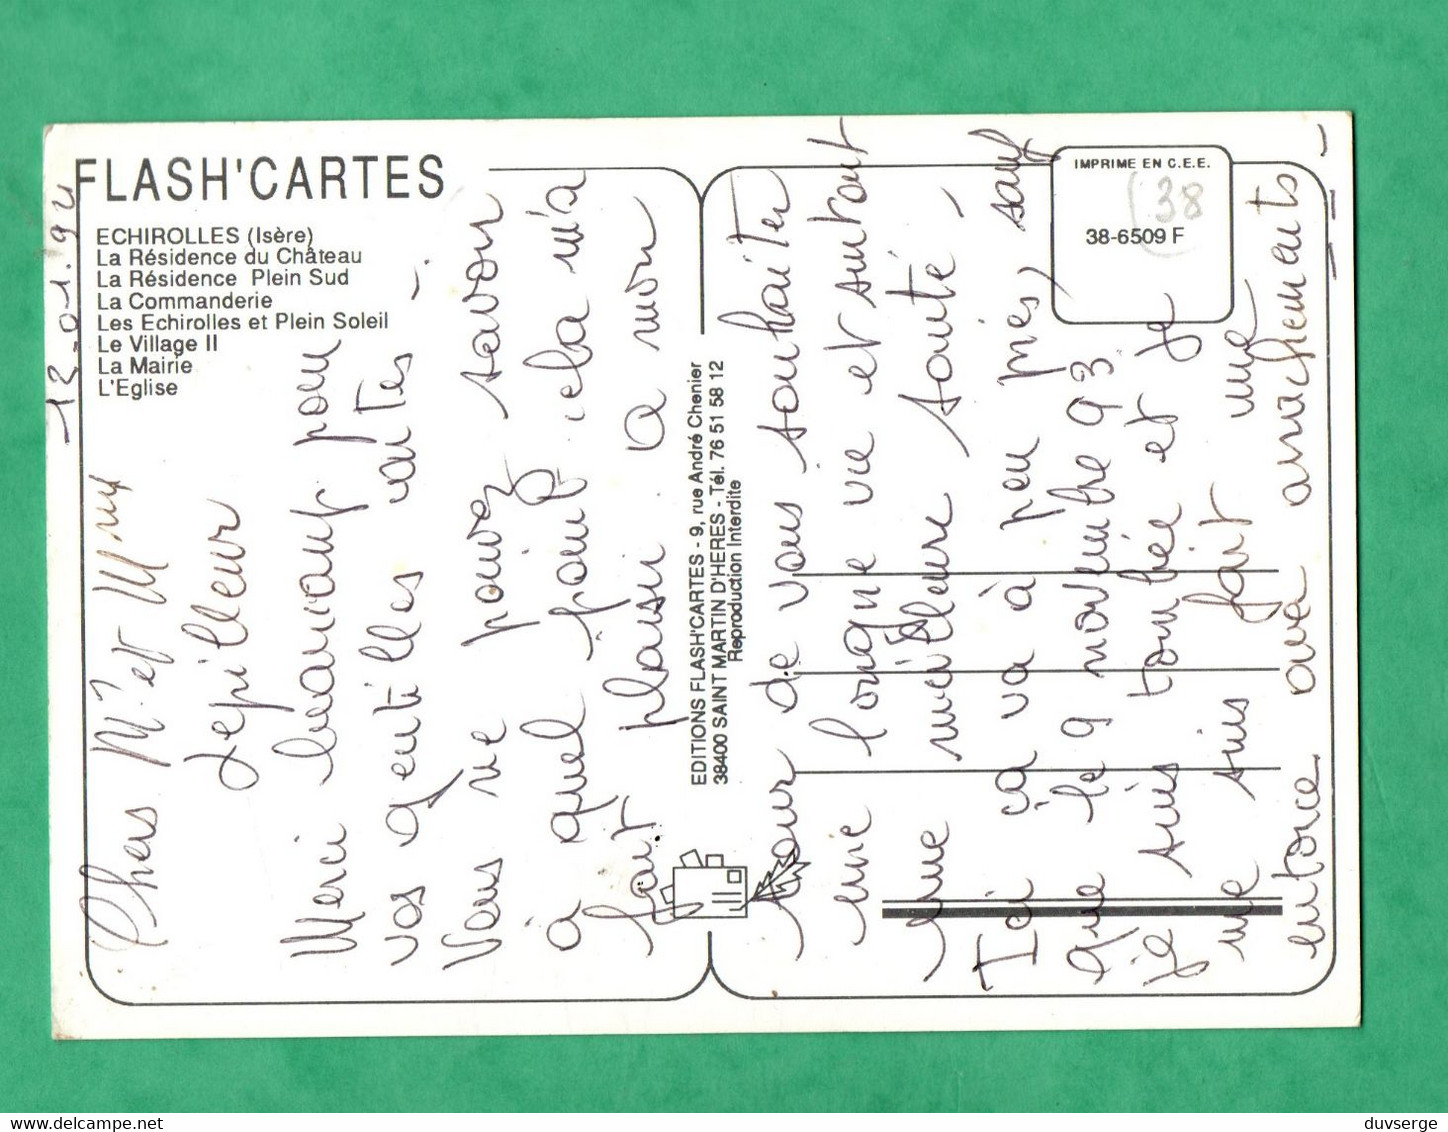 FLASH'CARTES
ECHIROLLES (Isère)
La Résidence du Château
La Résidence Plein Sud
La Commanderie
Les Echirolles et Plein Soleil
Le Village II
La Mairie
L'Eglise
IMPRIME EN C.E.E.
(38
38-6509 F
EDITIONS FLASH'CARTES - 9, rue André Chenier
38400 SAINT MARTIN D'HERES - Tél. 76 51 58 12
Reproduction Interdite
12.01.94
Chers Mr et Mme
Merci beaucoup pour
vos gentilles cartes -
Vous ne pouvez savoir
à quel point cela m'a
fait plaisir. A mon
tour de vous souhaiter
une longue vie et surtout
une meilleure santé -
Ici ça va à peu près, sauf
que le 9 novembre 93
je suis tombée et je
me suis fait une
entorce avec arrachements
duvserge